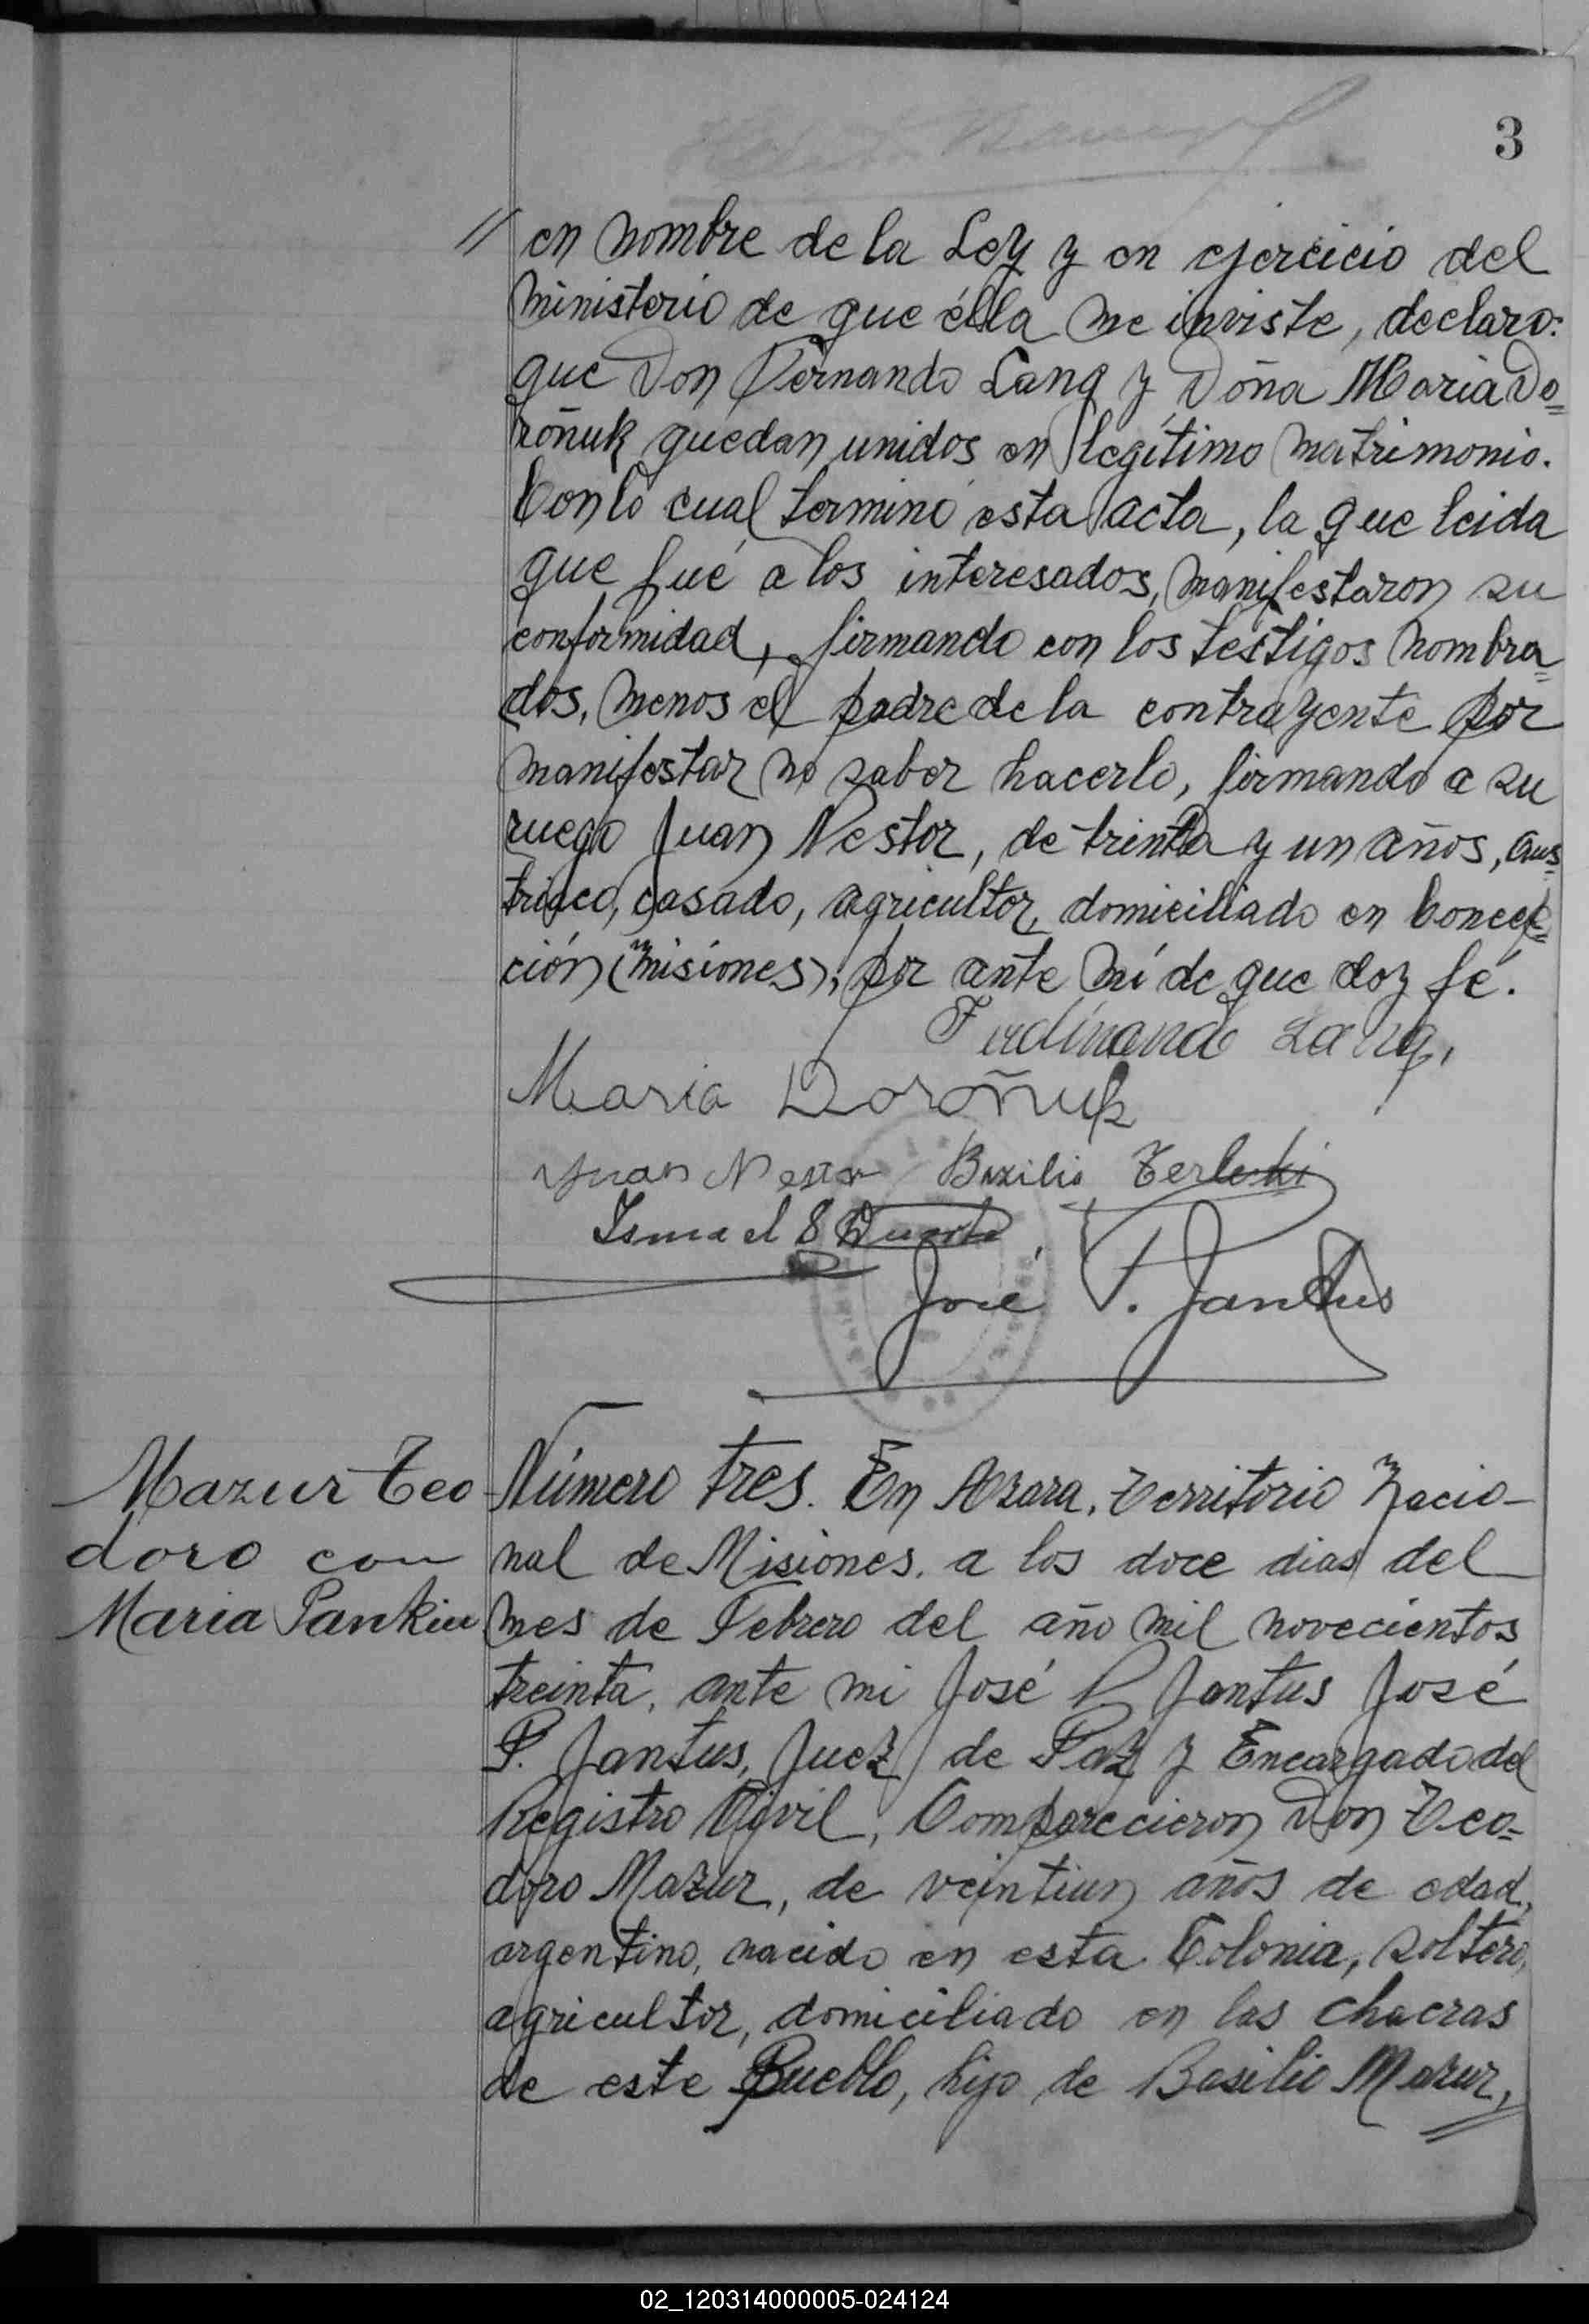 3
// en nombre de la Ley y en ejercicio del
ministerio de que élla me inviste, declaro:
que Don Fernando Lang y Doña Maria Do=
roñuk quedan unidos en legítimo matrimonio.
Con lo cual terminó esta acta, la que leida
que fué a los interesados, manifestaron su
conformidad, firmando con los testigos nombra=
dos, menos el padre de la contrayente por
manifestar no saber hacerlo, firmando a su
ruego Juan Nestor, de treinta y un años, aus=
triaco, casado, agricultor, domiciliado en Concep=
ción (Misiones), por ante mí de que doy fé.
Ferdinand Lang,
Maria Doroñuk
Juan Nestor Basilio Terlecki
Ismael 8 Duarte
José P. Jantus
Mazur Teo
doro con
Maria Pankiu
Número tres. En Azara, Territorio Nacio-
nal de Misiones, a los doce dias del
mes de Febrero del año mil novecientos
treinta, ante mi José P Jantus José
P. Jantus, Juez de Paz y Encargado del
Registro Civil, Comparecieron Don Teo=
doro Mazur, de veintiun años de edad,
argentino, nacido en esta Colonia, soltero,
agricultor, domiciliado en las chacras
de este Pueblo, hijo de Basilio Mazur,
02_120314000005-024124